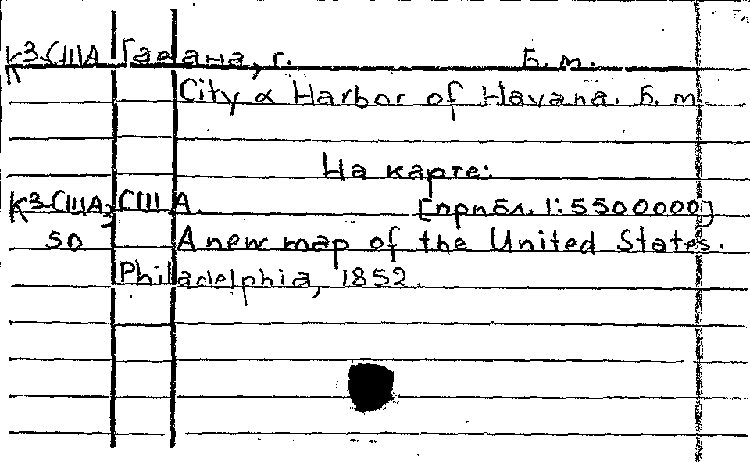 К3-США Гавана, г. Б. м.
City & Harbor of Havana. Б. м.
На карте:
К3-США, США. [прибл. 1:5500000]
50 A new map of the United States.
Philadelphia, 1852.